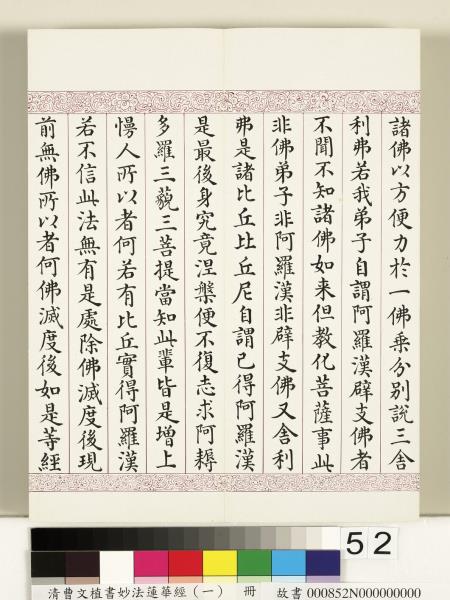 諸佛以方便力於一佛乘分別說三舍
利弗若我弟子自謂阿羅漢辟支佛者
不聞不知諸佛如来但教化菩薩事此
非佛弟子非阿羅漢非辟支佛又舍利
弗是諸比丘比丘尼自謂已得阿羅漢
是最後身究竟涅槃便不復志求阿耨
多羅三藐三菩提當知此輩皆是增上
慢人所以者何若有比丘實得阿羅漢
若不信此法無有是處除佛滅度後現
前無佛所以者何佛滅度後如是等經
52
清曹文植書妙法蓮華經(一) 冊 故書 000852N000000000